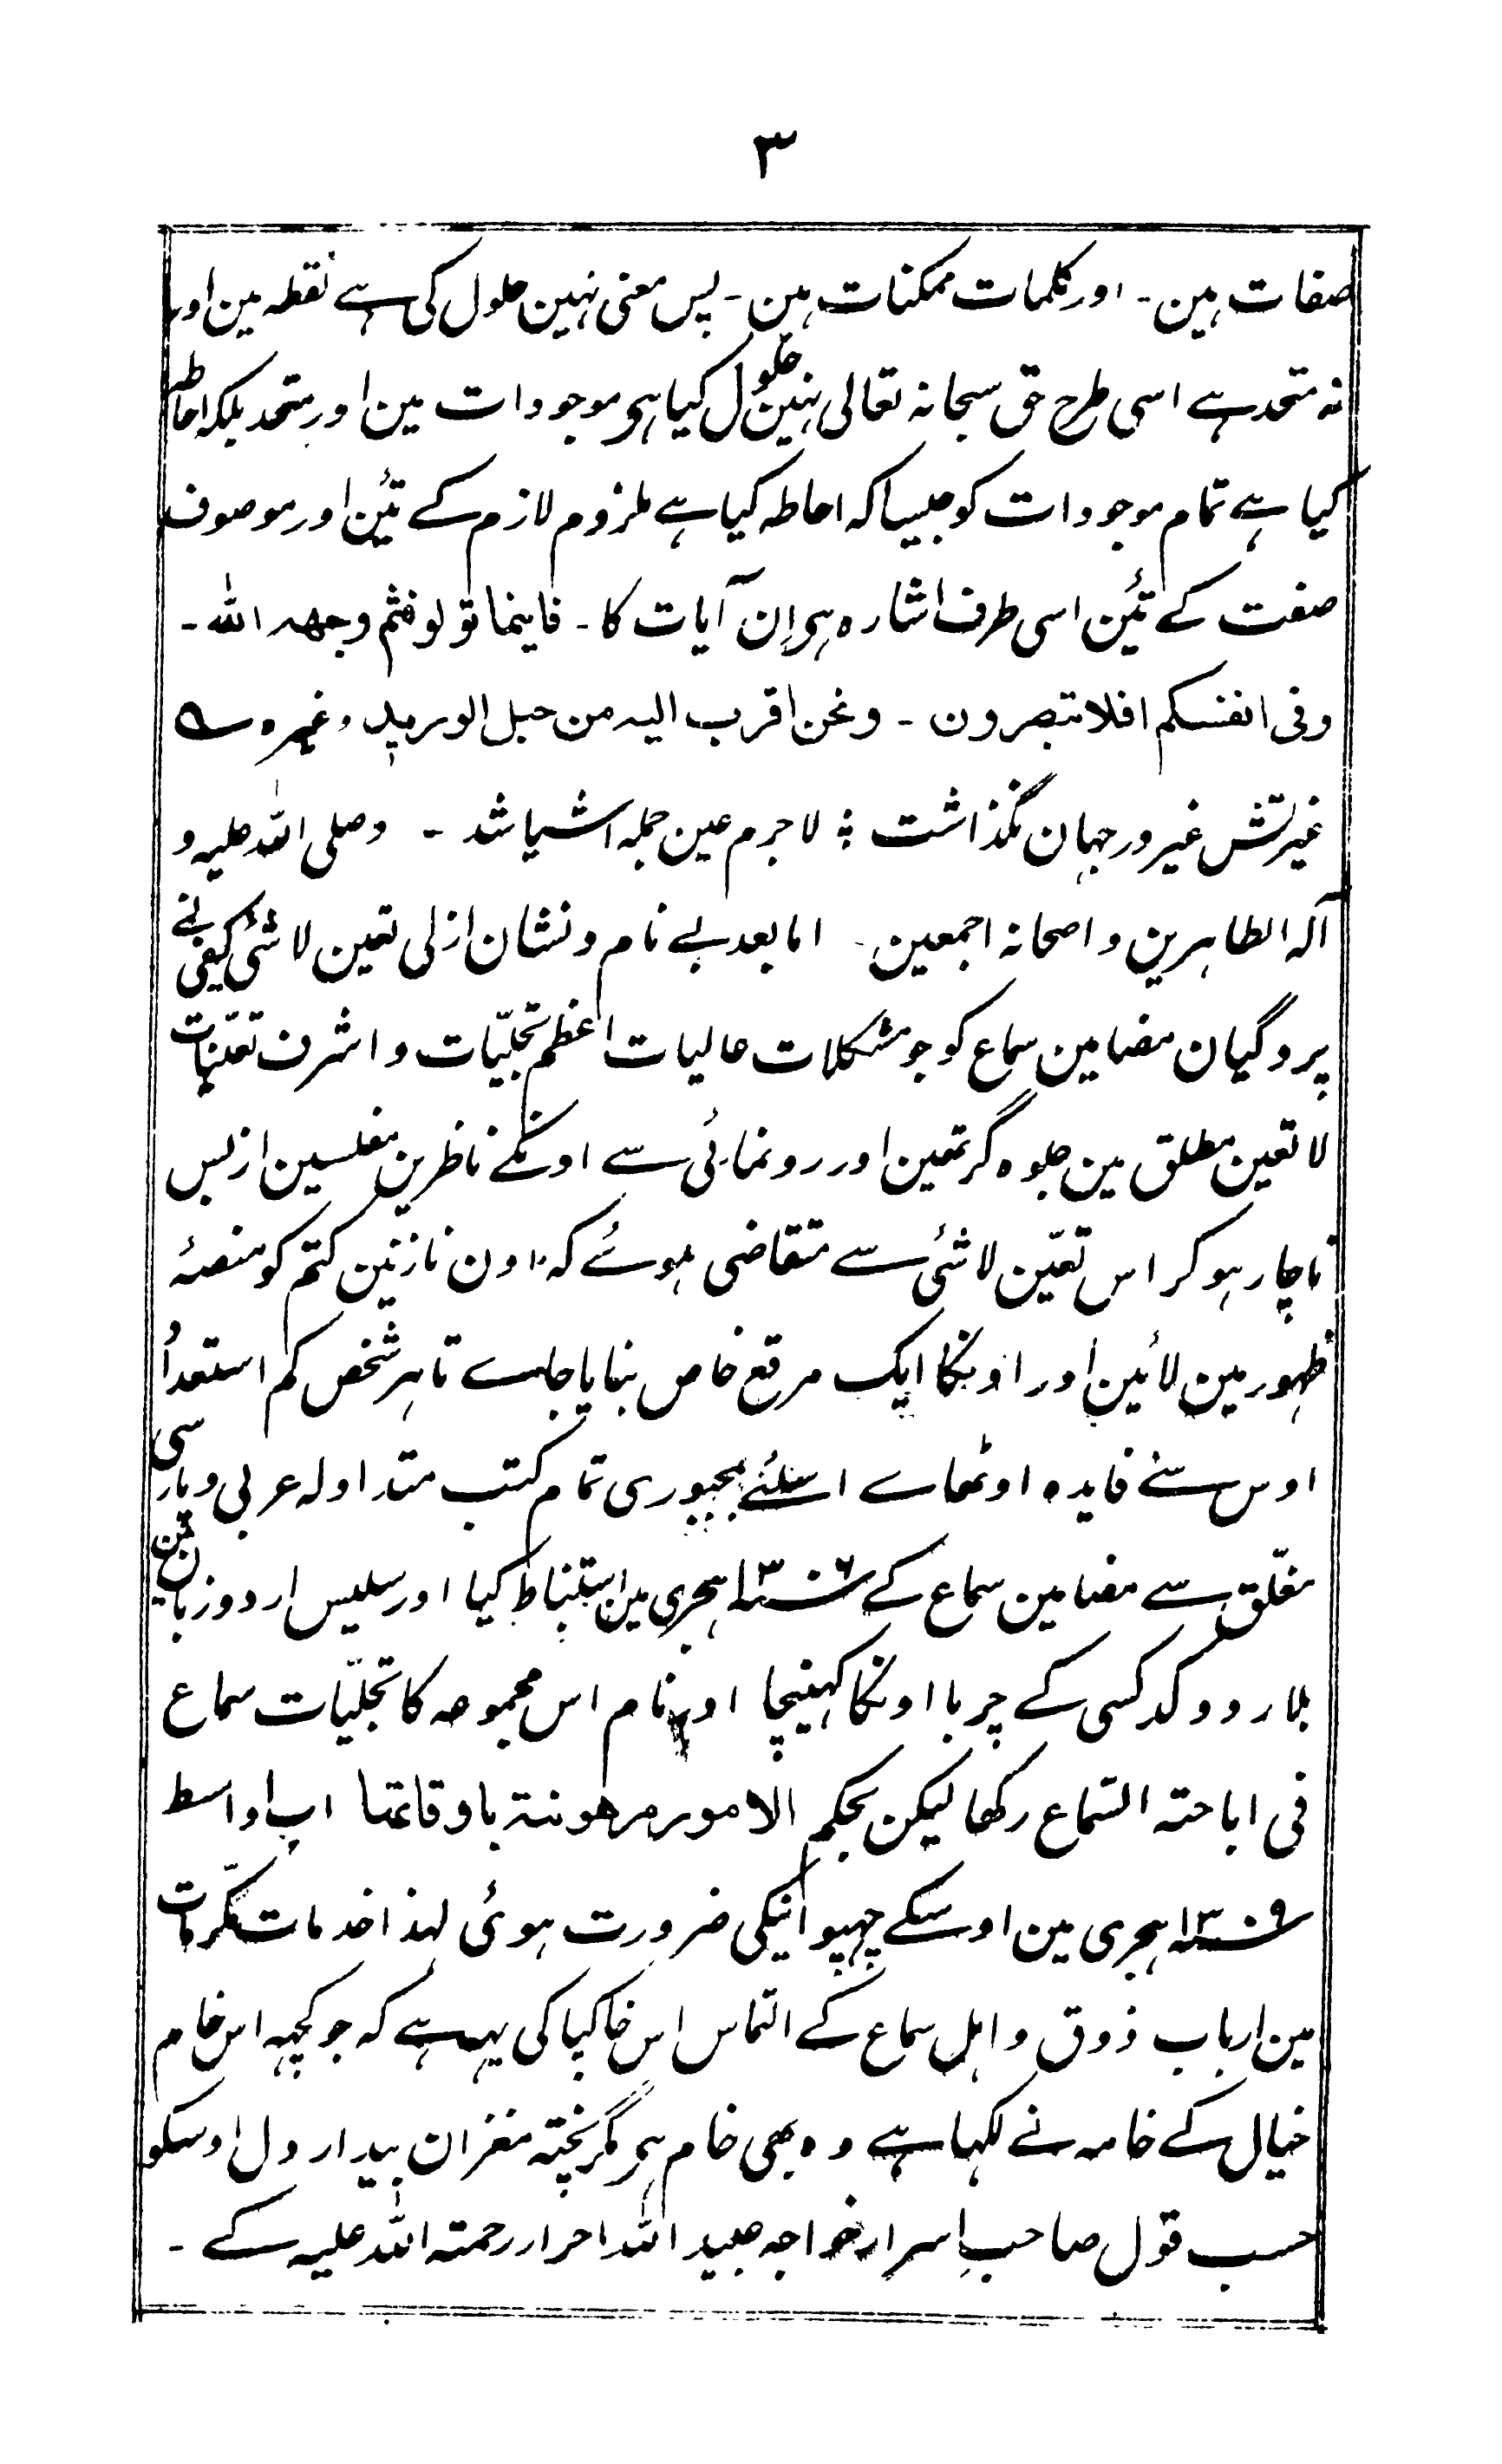 ۳
صفات ہین۔ اور کلمات ممکنات ہین۔ پس معنی نہین حلول کی ہے نقطہ مین اور
نہ متحد ہے اسی طرح حق سبحانہ تعالی نہین حلول کیا ہی موجودات مین اور متحد بلکہ احاطہ
کیا ہے تمام موجودات کو جیسا کہ احاطہ کیا ہے ملزوم لازم کے تئین اور موصوف
صفت کے تئین اسی طرف اشارہ ہی ان آیات کا۔ فاینما تولو فثم وجهہ اللہ۔
وفی انفسکم افلا تبصرون۔ ونحن اقرب الیہ من حبل الورید وغیرہ ؎
غیرتش غیر در جہان نگذاشت ؛ لاجرم عین جملہ اشیا شد۔ وصلی اللہ علیہ و
آلہ الطاہرین و اصحابہ اجمعین۔ اما بعد بے نام و نشان ازلی تعین لاشئی کیفی نے
پردگیان مضامین سماع کو جو مشکلات حالیات اعظم تجلیّات و اشرف تعیّنات
لاتعین مطلق مین جلوہ گر تھین اور رونمائی سے اونکے ناظرین مفلسین از بس
ناچار ہو کر اس تعیّن لاشئی سے متقاضی ہوئے کہ اون نازنین کتم کو منصۂ
ظہور مین لائین اور اونکا ایک مرقع خاص بنایا جاے تا ہر شخص کم استعداد
اوس سے فایدہ اوٹھاے اسلئے بمجبوری تمام کتب متداولہ عربی و پارسی
مغلّق سے مضامین سماع کے ۱۳۰۶ ہجری مین استنباط کیا اور سلیس اردو زبان مین
بلا رد و کد کسی کے چربا اونکا کہینچا اور نام اس مجموعہ کا تجلیّات سماع
فی اباحتہ السّماع رکھا لیکن بحکم الامور مرهونتہ باوقاتها اب اواسط
۱۳۰۹ ہجری مین اوسکے چہپوانیکی ضرورت ہوئی لہذا خدمات مکرمات
مین ارباب ذوق و اہل سماع کے التماس اس خاکپا کی یہہ ہے کہ جو کچہہ اس خام
خیال کے خامہ نے لکہا ہے وہ بھی خام ہی مگر پختہ مغزان بیدار دل اوسکو
حسب قول صاحبِ اسرار خواجہ عبید اللہ احرار رحمتہ اللہ علیہ کے۔